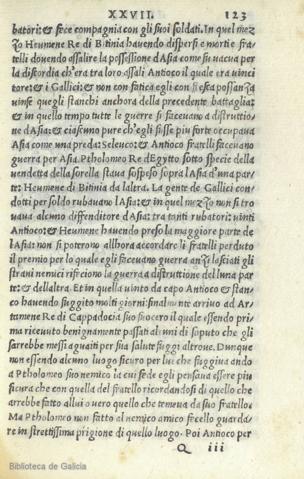 XXVII. 123
batori: & fece compagnia con gli suoi soldati. In quel mez
zo Heumene Re di Bitinia havendo dispersi e morti e fra
telli dovendo assalire la possessione d'Asia come su vacua per
la discordia ch'era tra loro assali Antioco il quale era vinci
tore: & i Gallici: & non con fatica egli con possanza
vinse quegli stanchi anchora della precedente battaglia:
& in quello tempo tutte le guerre si facevano a distruttio
ne d'Asia: & ciascuno pure ch'egli fusse piu forte occupava
Asia come una preda: Seleuco: & Antioco fratelli facevano
guerra per Asia. Ptholomeo Re d'Egytto sotto specie della
vendetta della sorella stava sospeso sopra l'Asia d'una par
te: Heumene di Bitinia da laltra. La gente de Gallici con
dotti per soldo rubavano l'Asia: & in quel mezzo non si tro
vava alcuno diffenditore d'Asia: tra tanti rubatori: vinti
Antioco: & Heumene havendo preso la maggiore parte de
l'Asia: non si poterono allhora accordare li fratelli perduto
il premio per lo quale egli facevano guerra anzi lasciati gli
strani nemici rificiono la guerra a distruttione del luna par
te: & dellaltra. Et in quella vinto da capo Antioco & stan
co havendo fuggito molti giorni: finalmente arrivo ad Ar
tamene Re di Cappadocia suo suocero il quale essendo pri
ma ricevuto benignamente passati alcuni di saputo che gli
sarebbe messi aguaiti per sua salute fuggi altrove. Dunque
non essendo alcuno luogo sicuro per lui che fuggiva ando
a Ptholomeo suo nemico la cui fede egli pensava essere piu
sicura che con quella del fratello ricordandosi di quello che
arrebbe fatto allui o vero quello che temeva da suo fratello.
Ma Ptholomeo non fatto al nemico amico fecello guarda/
re in strettissima prigione di quello luogo. Poi Antioco per
Q iii
Biblioteca de Galicia